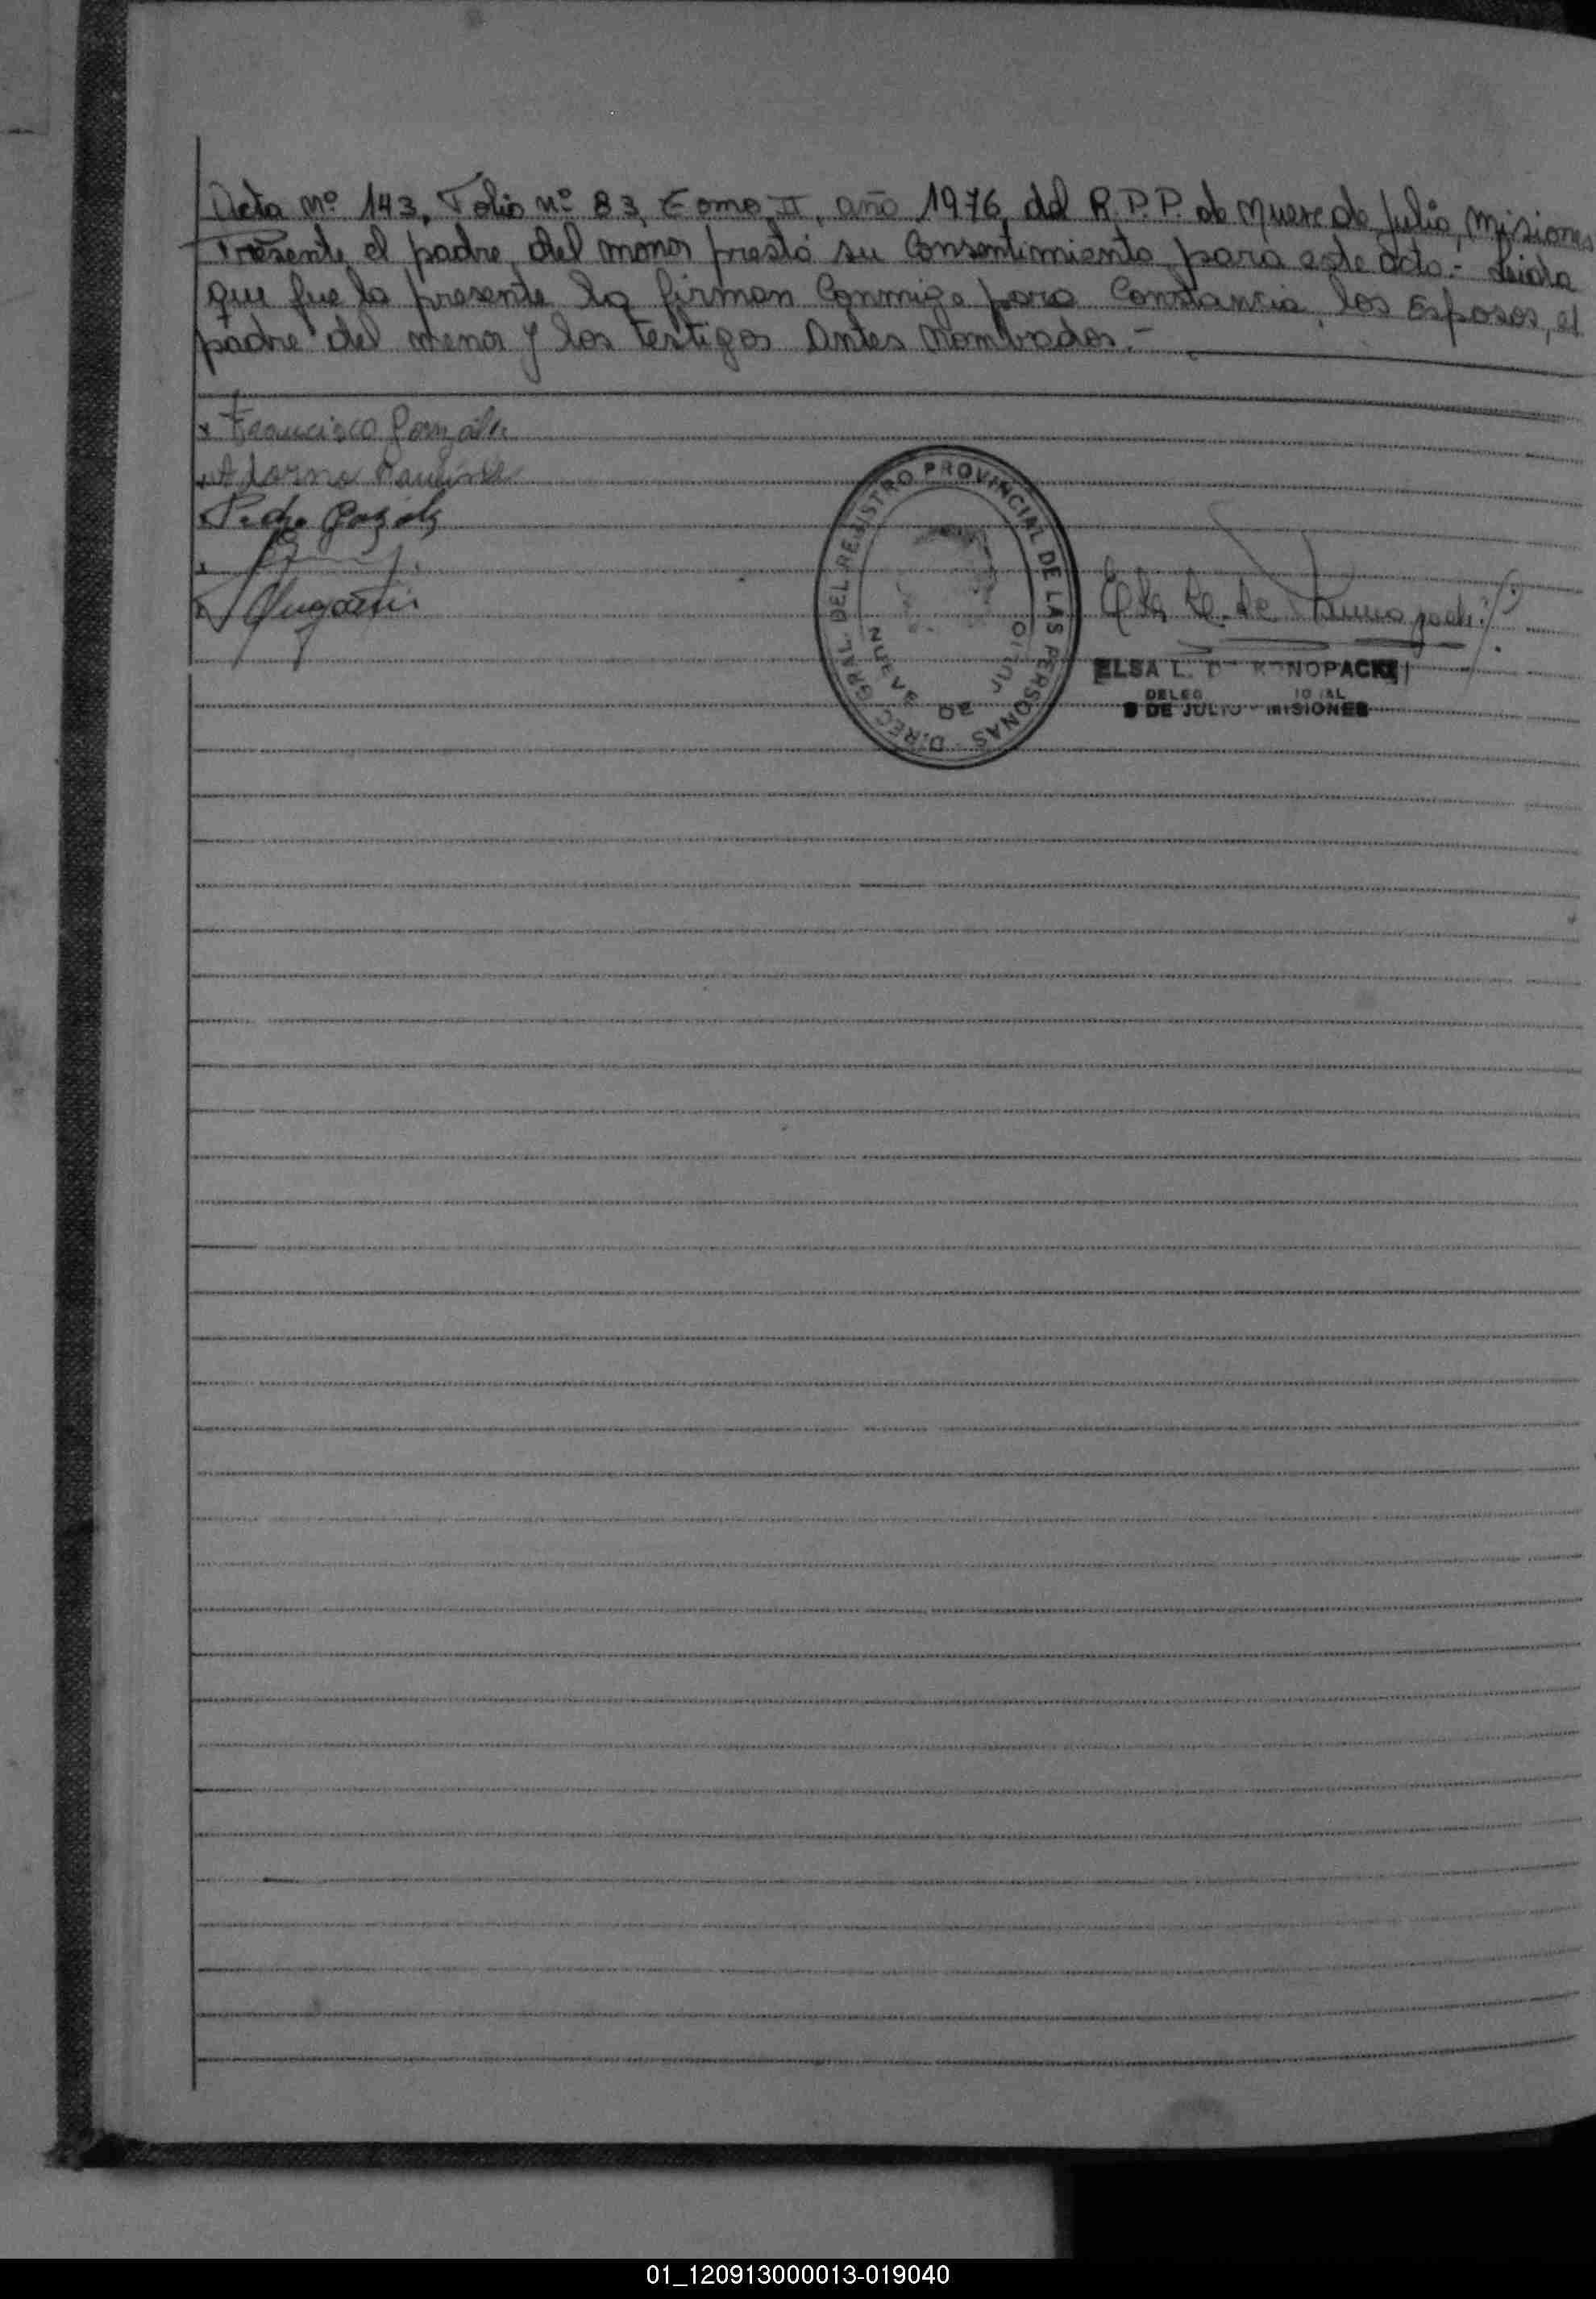 Acta nº 143, Folio nº 83, Tomo II, año 1976, del R.P.P. de Nueve de Julio, Misiones
Presente el padre del menor prestó su Consentimiento para este acto.- Leida
que fue la presente la firman Conmigo para Constancia, los Esposos, el
padre del menor y los testigos Antes Nombrados.-
Francisco González
Pedro
DIREC. GRAL. DEL REGISTRO PROVINCIAL DE LAS PERSONAS
NUEVE DE JULIO
Elsa L. de
ELSA L. DE KONOPACKI
9 DE JULIO - MISIONES
01_120913000013-019040